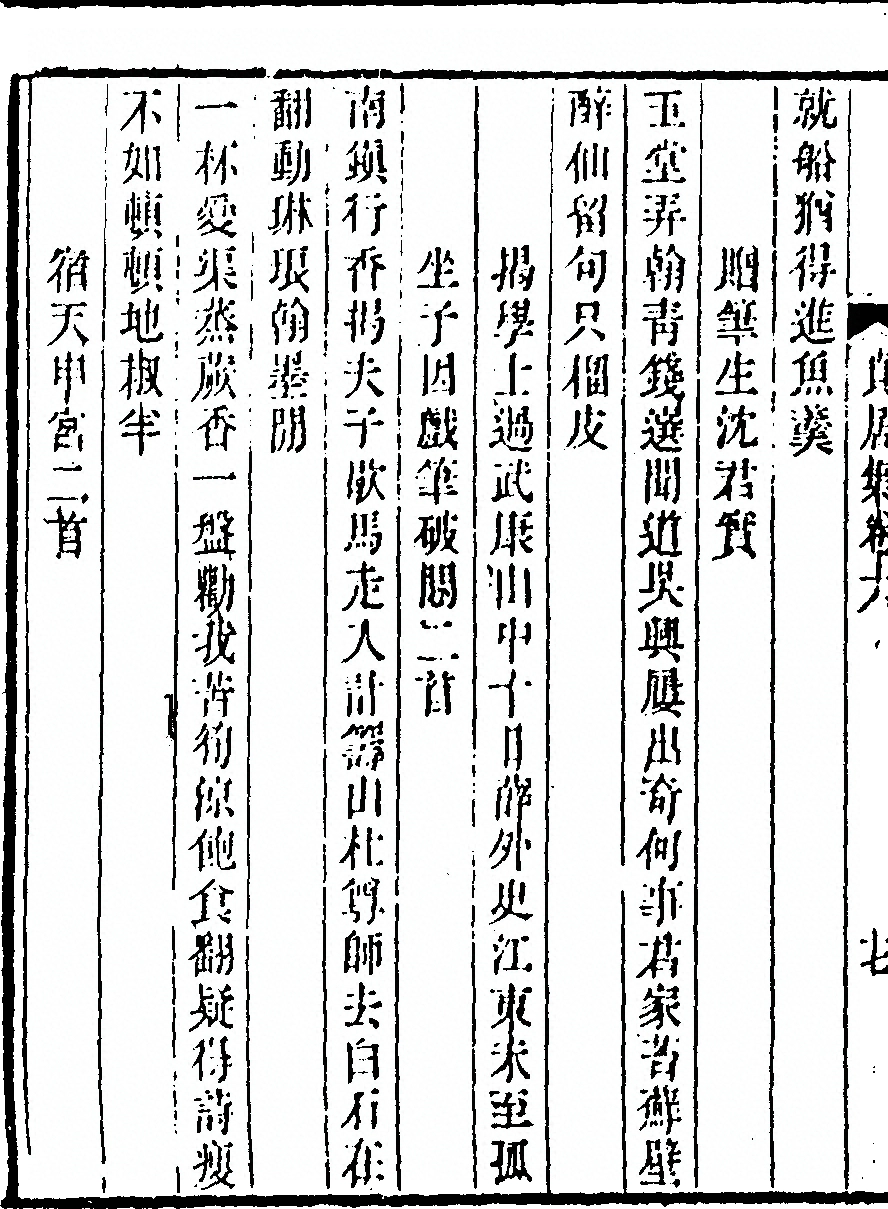 貞居集卷六　七
就船猶得進魚羹
贈筆生沈君寶
玉堂弄翰青錢選聞道吳興屢出奇何事君家苔蘚壁
醉仙留句只榴皮
揭學士過武康山中十日薛外史江東未至孤
坐予因戲筆破悶二首
南鎮行香揭夫子歇馬走入計籌山杜尊師去白石在
翻動琳琅翰墨閒
一杯愛渠蒸蕨香一盤勸我苦筍涼飽食翻疑得詩瘦
不如頓頓地椒羊
宿天申宮二首